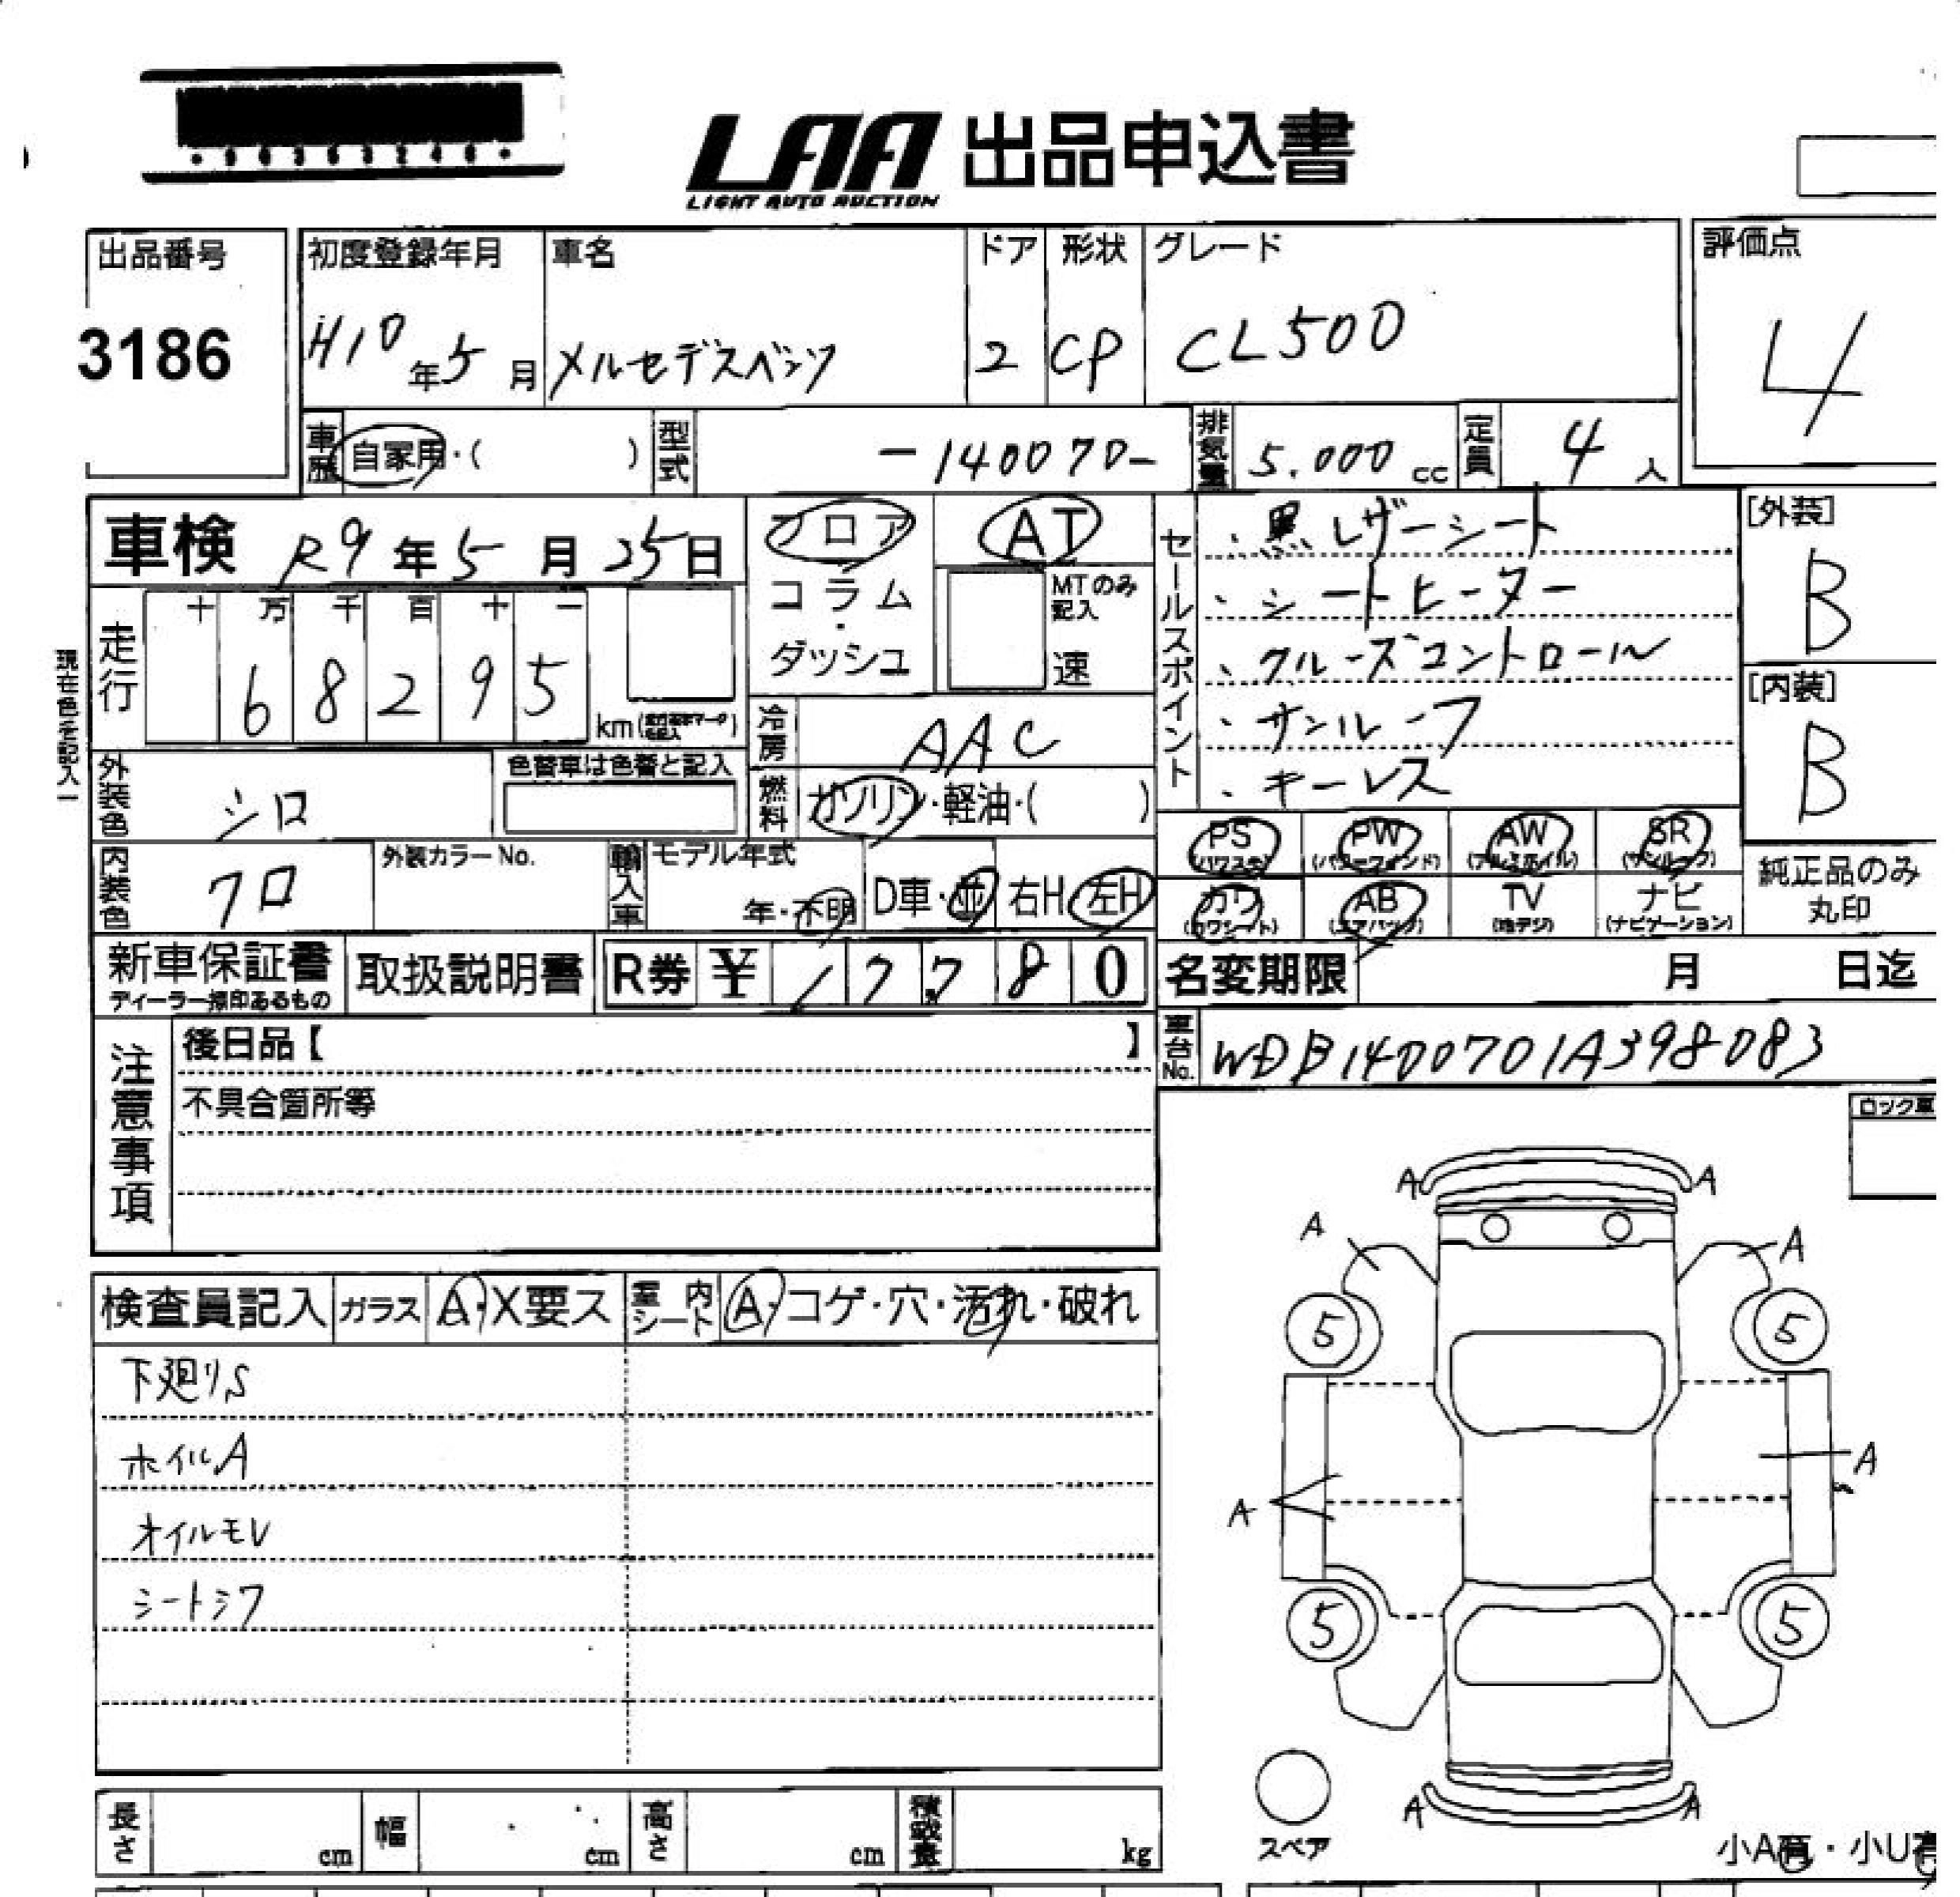 LAA 出品申込書
LIGHT AUTO AUCTION
出品番号
3186
初度登録年月
H10年5月
車名
メルセデスベンツ
ドア
2
形状
CP
グレード
CL500
評価点
4
車歴 自家用・( )
型式 -140070-
排気量 5.000 cc
定員 4 人
車検 R9年5月25日
フロア
コラム
・
ダッシュ
AT
MTのみ記入
速
セールスポイント
・黒レザーシート
・シートヒーター
・クルーズコントロール
・サンルーフ
・キーレス
[外装]
B
[内装]
B
現在色を記入
走行
十 万 千 百 十 一
6 8 2 9 5
km
冷房 AAC
燃料 ガソリン・軽油・( )
外装色 シロ
色替車は色替と記入
内装色 クロ
外装カラーNo.
輸入車
モデル年式
年・不明
D車・並 右H 左H
PS (パワステ) PW (パワーウィンド) AW (アルミホイル) SR (サンルーフ)
カワ (カワシート) AB (エアバッグ) TV (地デジ) ナビ (ナビゲーション)
純正品のみ
丸印
新車保証書
ディーラー捺印あるもの
取扱説明書
R券 ¥ 17780
名変期限 月 日迄
車台No. WDB1400701A398083
注意事項
後日品【 】
不具合箇所等
ロック車
検査員記入 ガラス A・X要ス 室内シート A・コゲ・穴・汚れ・破れ
下廻りS
ホイルA
オイルモレ
シートシワ
A A
A A
5 5
A
A
5 5
A A
スペア
小A有・小U有
長さ cm 幅 cm 高さ cm 積載量 kg